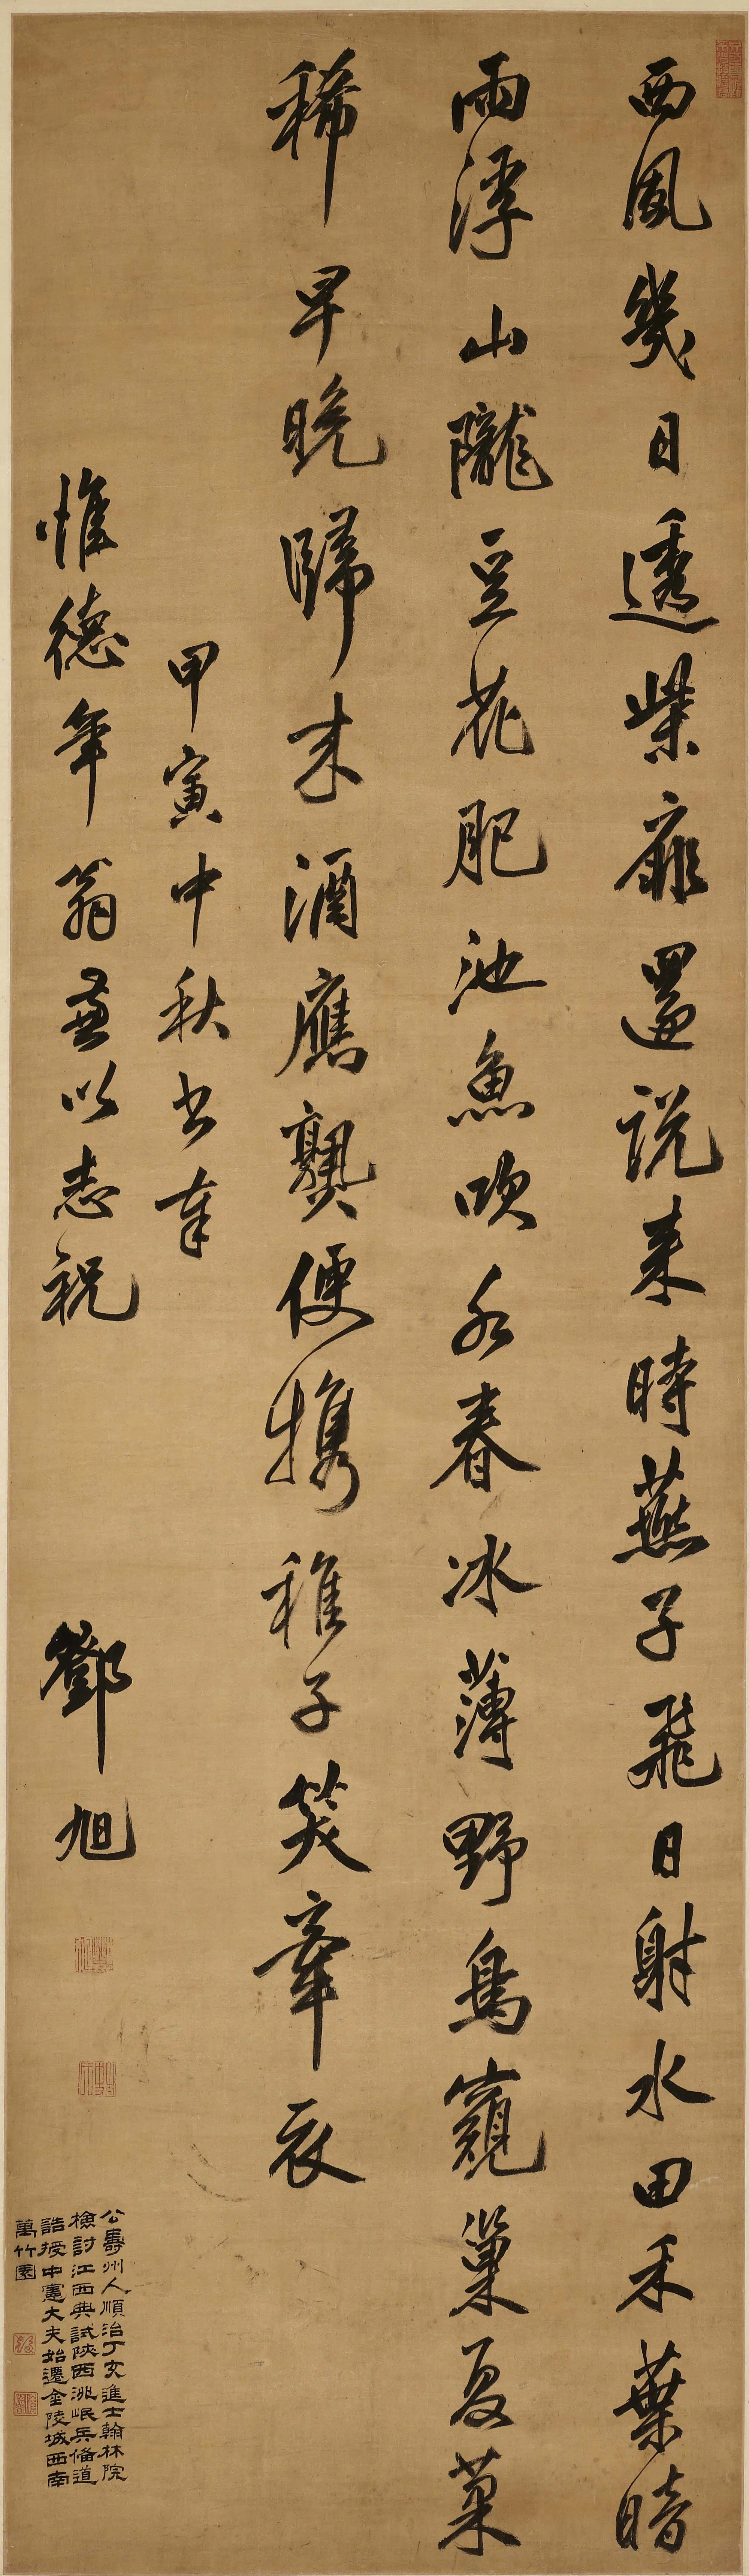 西風幾日透柴扉還説來時燕子飛日射水田禾葉暗
雨浮山隴豆花肥池魚吹水春冰薄野鳥窺巢夏菓
稀早晚歸來酒應熟便携稚子笑牽衣
甲寅中秋書奉
惟德年翁兼以志祝
鄧旭
公壽州人順治丁亥進士翰林院
檢討江西典試陝西洮岷兵備道
誥授中憲大夫始遷金陵城西南
萬竹園